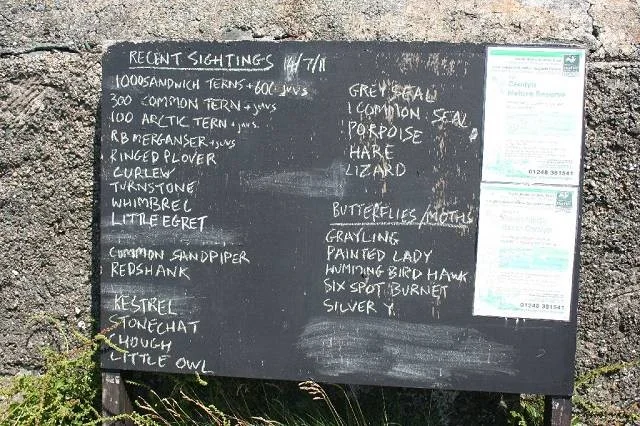 RECENT SIGHTINGS 4/7/11
1000 SANDWICH TERNS + 600 JUVS
300 COMMON TERN + JUVS
100 ARCTIC TERN + JUVS.
RB MERGANSER + JUVS
RINGED PLOVER
CURLEW
TURNSTONE
WHIMBREL
LITTLE EGRET
COMMON SANDPIPER
REDSHANK
KESTREL
STONECHAT
CHOUGH
LITTLE OWL
GREY SEAL
1 COMMON SEAL
PORPOISE
HARE
LIZARD
BUTTERFLIES/MOTHS
GRAYLING
PAINTED LADY
HUMMING BIRD HAWK
SIX SPOT BURNET
SILVER Y.
Cemlyn
Nature Reserve
01248 351541
01248 351541